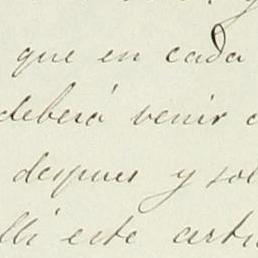 que en cada
deberá venir
despues y sol
lli este